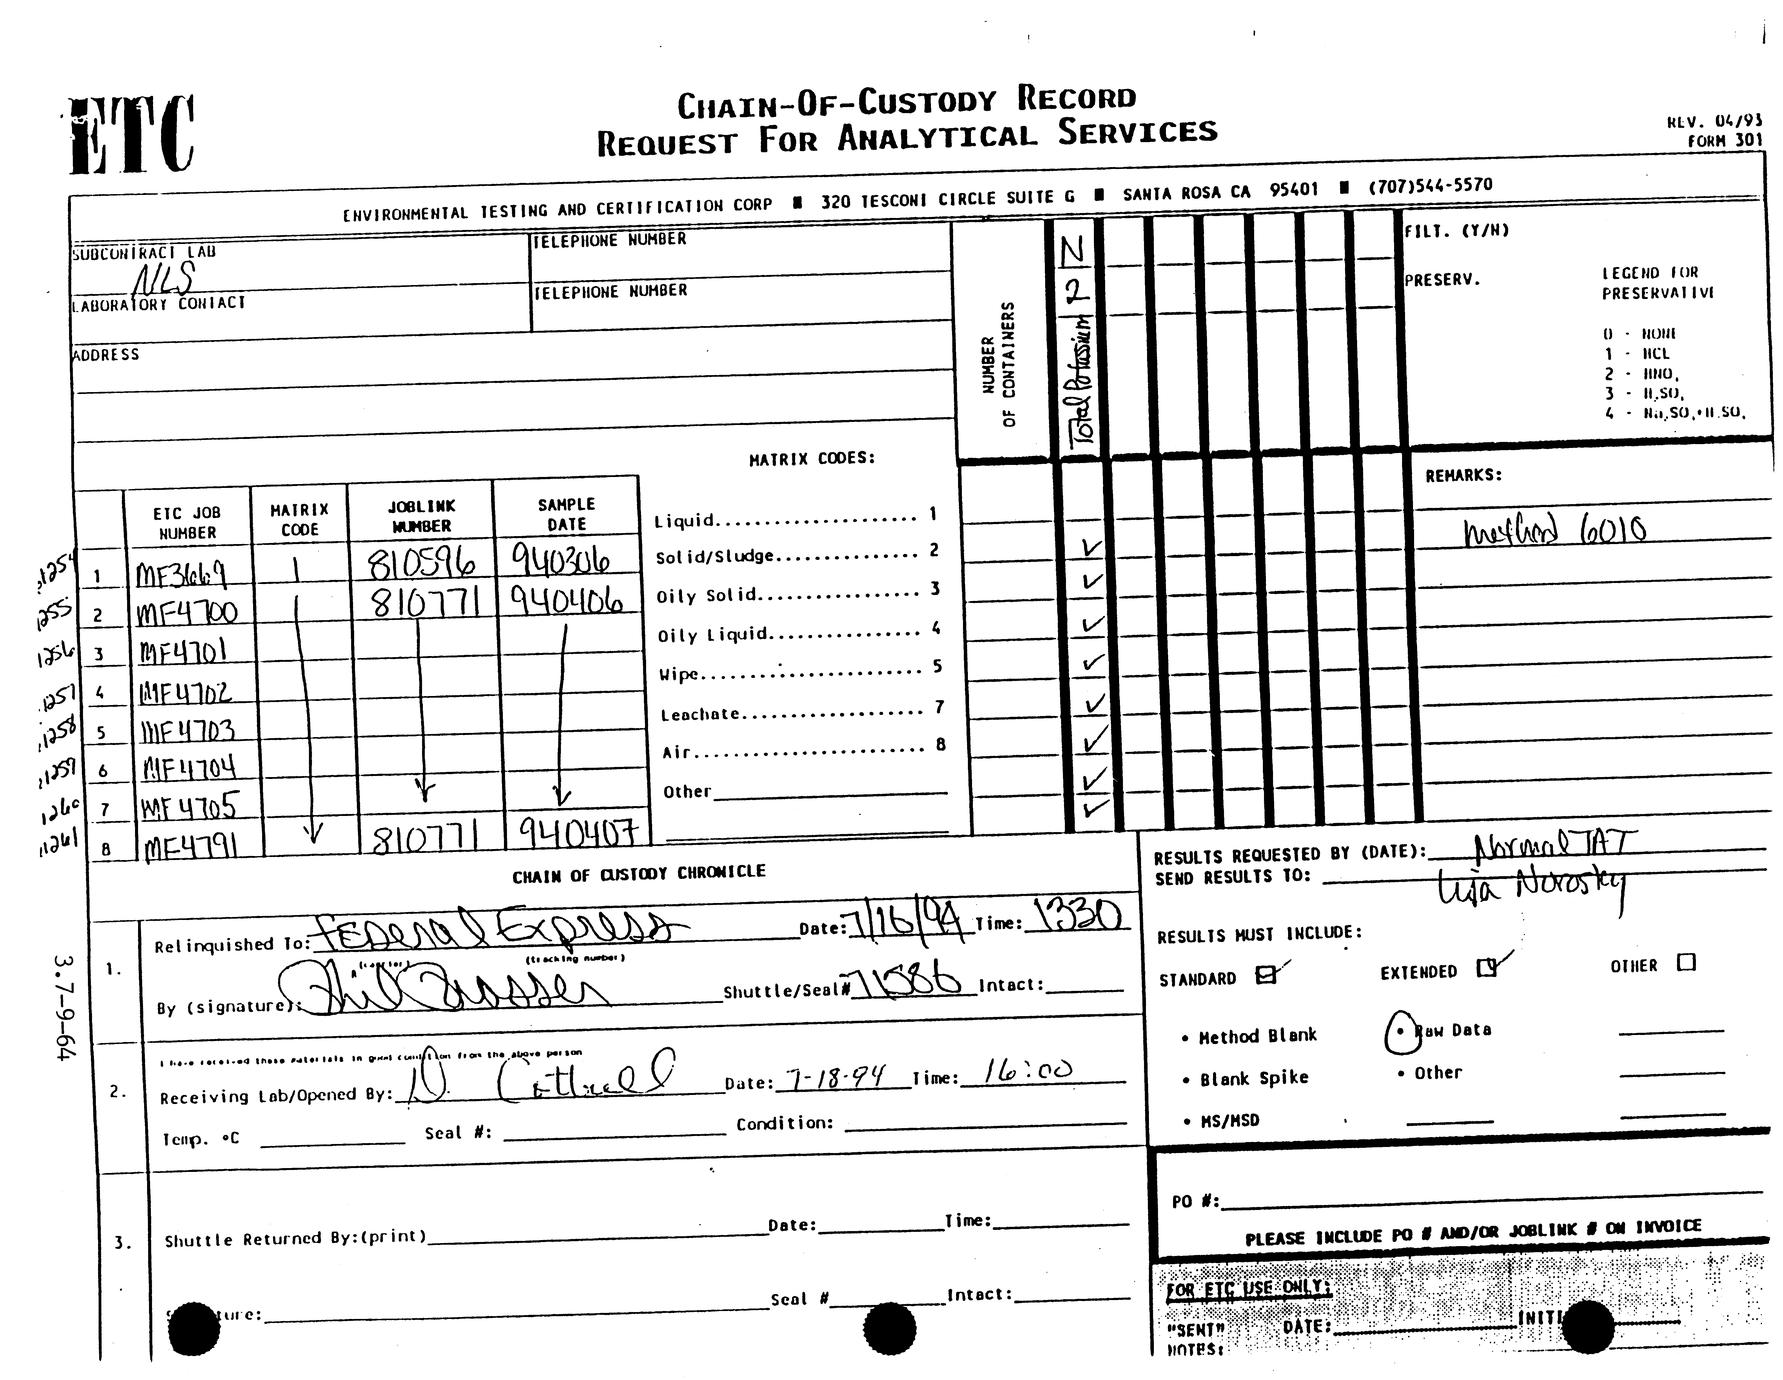 ETC
CHAIN-OF-CUSTODY RECORD
REQUEST FOR ANALYTICAL SERVICES
REV. 04/93
FORM 301
ENVIRONMENTAL TESTING AND CERTIFICATION CORP ■ 320 TESCONI CIRCLE SUITE G ■ SANTA ROSA CA 95401 ■ (707)544-5570
SUBCONTRACT LAB
NLS
TELEPHONE NUMBER
LABORATORY CONTACT
TELEPHONE NUMBER
ADDRESS
NUMBER
OF CONTAINERS
Total Potassium 2 N
FILT. (Y/N)
PRESERV.
LEGEND FOR
PRESERVATIVE
0 - NONE
1 - HCL
2 - HNO,
3 - H,SO,
4 - Na,SO,+H.SO,
MATRIX CODES:
Liquid.................... 1
Solid/Sludge............... 2
Oily Solid................. 3
Oily Liquid................ 4
Wipe....................... 5
Leachate................... 7
Air........................ 8
Other
REMARKS:
Method 6010
ETC JOB NUMBER MATRIX CODE JOBLINK NUMBER SAMPLE DATE
1254 1 MF3669 1 810596 940306 ✓
1255 2 MF4700 810771 940406 ✓
1256 3 MF4701 ✓
1257 4 MF4702 ✓
1258 5 MF4703 ✓
1259 6 MF4704 ✓
1260 7 MF4705 ✓
1261 8 MF4791 810771 940407 ✓
RESULTS REQUESTED BY (DATE): Normal TAT
SEND RESULTS TO: Lisa Norosky
CHAIN OF CUSTODY CHRONICLE
1. Relinquished To: Federal Express Date: 7/16/94 Time: 1330
(carrier) (tracking number)
By (signature): Phil Shuttle/Seal# 71586 Intact:
RESULTS MUST INCLUDE:
STANDARD EXTENDED OTHER
• Method Blank • Raw Data
• Blank Spike • Other
• MS/MSD
3.7-9-64
I have received these materials in good condition from the above person
2. Receiving Lab/Opened By: D. Cottrell Date: 7-18-94 Time: 16:00
Temp. °C Seal #: Condition:
PO #:
PLEASE INCLUDE PO # AND/OR JOBLINK # ON INVOICE
3. Shuttle Returned By:(print) Date: Time:
ture: Seal # Intact:
FOR ETC USE ONLY:
"SENT" DATE: INITI
NOTES: